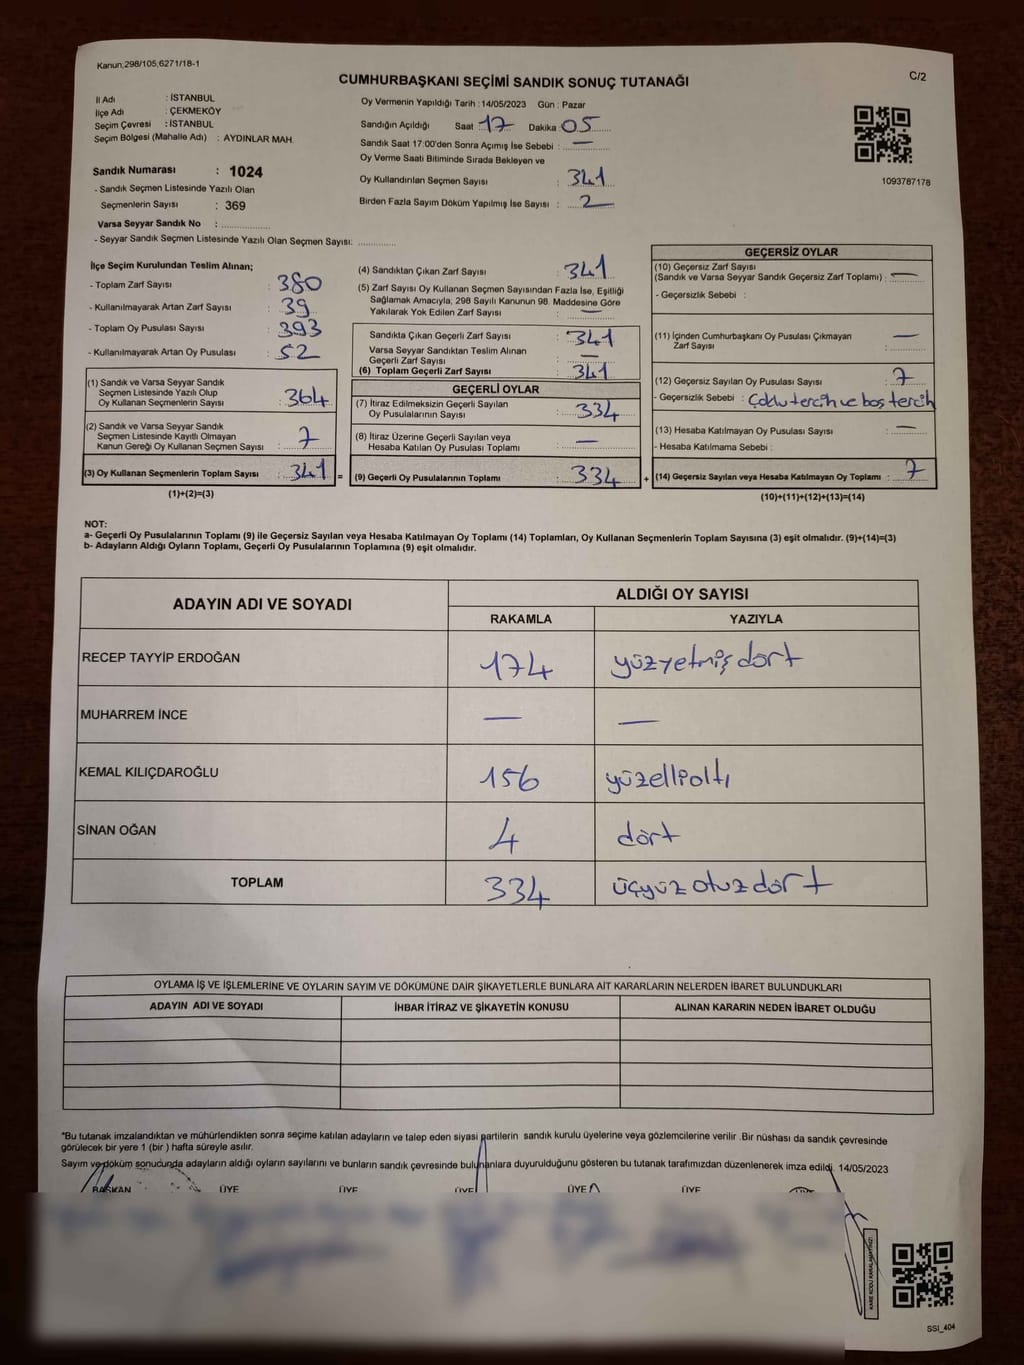 Kanun,298/105,6271/18-1
CUMHURBAŞKANI SEÇİMİ SANDIK SONUÇ TUTANAĞI
C/2
İl Adı : İSTANBUL
İlçe Adı : ÇEKMEKÖY
Seçim Çevresi : İSTANBUL
Seçim Bölgesi (Mahalle Adı) : AYDINLAR MAH.
Sandık Numarası : 1024
- Sandık Seçmen Listesinde Yazılı Olan
Seçmenlerin Sayısı : 369
Varsa Seyyar Sandık No :
- Seyyar Sandık Seçmen Listesinde Yazılı Olan Seçmen Sayısı:
Oy Vermenin Yapıldığı Tarih : 14/05/2023 Gün : Pazar
Sandığın Açıldığı Saat : 17 Dakika : 05
Sandık Saat 17:00'den Sonra Açımış İse Sebebi : —
Oy Verme Saati Bitiminde Sırada Bekleyen ve
Oy Kullandırılan Seçmen Sayısı : 341
Birden Fazla Sayım Döküm Yapılmış İse Sayısı : 2
1093787178
İlçe Seçim Kurulundan Teslim Alınan;
- Toplam Zarf Sayısı : 380
- Kullanılmayarak Artan Zarf Sayısı : 39
- Toplam Oy Pusulası Sayısı : 393
- Kullanılmayarak Artan Oy Pusulası : 52
(1) Sandık ve Varsa Seyyar Sandık
Seçmen Listesinde Yazılı Olup
Oy Kullanan Seçmenlerin Sayısı : 364
(2) Sandık ve Varsa Seyyar Sandık
Seçmen Listesinde Kayıtlı Olmayan
Kanun Gereği Oy Kullanan Seçmen Sayısı : 7
(3) Oy Kullanan Seçmenlerin Toplam Sayısı : 341 =
(1)+(2)=(3)
(4) Sandıktan Çıkan Zarf Sayısı : 341
(5) Zarf Sayısı Oy Kullanan Seçmen Sayısından Fazla İse, Eşitliği
Sağlamak Amacıyla; 298 Sayılı Kanunun 98. Maddesine Göre
Yakılarak Yok Edilen Zarf Sayısı : —
Sandıkta Çıkan Geçerli Zarf Sayısı : 341
Varsa Seyyar Sandıktan Teslim Alınan
Geçerli Zarf Sayısı : —
(6) Toplam Geçerli Zarf Sayısı : 341
GEÇERLİ OYLAR
(7) İtiraz Edilmeksizin Geçerli Sayılan
Oy Pusulalarının Sayısı : 334
(8) İtiraz Üzerine Geçerli Sayılan veya
Hesaba Katılan Oy Pusulası Toplamı : —
(9) Geçerli Oy Pusulalarının Toplamı : 334 +
GEÇERSİZ OYLAR
(10) Geçersiz Zarf Sayısı
(Sandık ve Varsa Seyyar Sandık Geçersiz Zarf Toplamı) : —
- Geçersizlik Sebebi :
(11) İçinden Cumhurbaşkanı Oy Pusulası Çıkmayan
Zarf Sayısı : —
(12) Geçersiz Sayılan Oy Pusulası Sayısı : 7
- Geçersizlik Sebebi : Çoklu tercih ve boş tercih
(13) Hesaba Katılmayan Oy Pusulası Sayısı : —
- Hesaba Katılmama Sebebi :
(14) Geçersiz Sayılan veya Hesaba Katılmayan Oy Toplamı : 7
(10)+(11)+(12)+(13)=(14)
NOT:
a- Geçerli Oy Pusulalarının Toplamı (9) ile Geçersiz Sayılan veya Hesaba Katılmayan Oy Toplamı (14) Toplamları, Oy Kullanan Seçmenlerin Toplam Sayısına (3) eşit olmalıdır. (9)+(14)=(3)
b- Adayların Aldığı Oyların Toplamı, Geçerli Oy Pusulalarının Toplamına (9) eşit olmalıdır.
ADAYIN ADI VE SOYADI
ALDIĞI OY SAYISI
RAKAMLA YAZIYLA
RECEP TAYYİP ERDOĞAN 174 yüzyetmiş dört
MUHARREM İNCE — —
KEMAL KILIÇDAROĞLU 156 yüzellialtı
SİNAN OĞAN 4 dört
TOPLAM 334 üçyüz otuz dört
OYLAMA İŞ VE İŞLEMLERİNE VE OYLARIN SAYIM VE DÖKÜMÜNE DAİR ŞİKAYETLERLE BUNLARA AİT KARARLARIN NELERDEN İBARET BULUNDUKLARI
ADAYIN ADI VE SOYADI İHBAR İTİRAZ VE ŞİKAYETİN KONUSU ALINAN KARARIN NEDEN İBARET OLDUĞU
*Bu tutanak imzalandıktan ve mühürlendikten sonra seçime katılan adayların ve talep eden siyasi partilerin sandık kurulu üyelerine veya gözlemcilerine verilir .Bir nüshası da sandık çevresinde
görülecek bir yere 1 (bir ) hafta süreyle asılır.
Sayım ve döküm sonucunda adayların aldığı oyların sayılarını ve bunların sandık çevresinde bulunanlara duyurulduğunu gösteren bu tutanak tarafımızdan düzenlenerek imza edildi. 14/05/2023
BAŞKAN ÜYE ÜYE ÜYE ÜYE ÜYE
KARE KODU KARALAMAYINIZ!
SSI_404